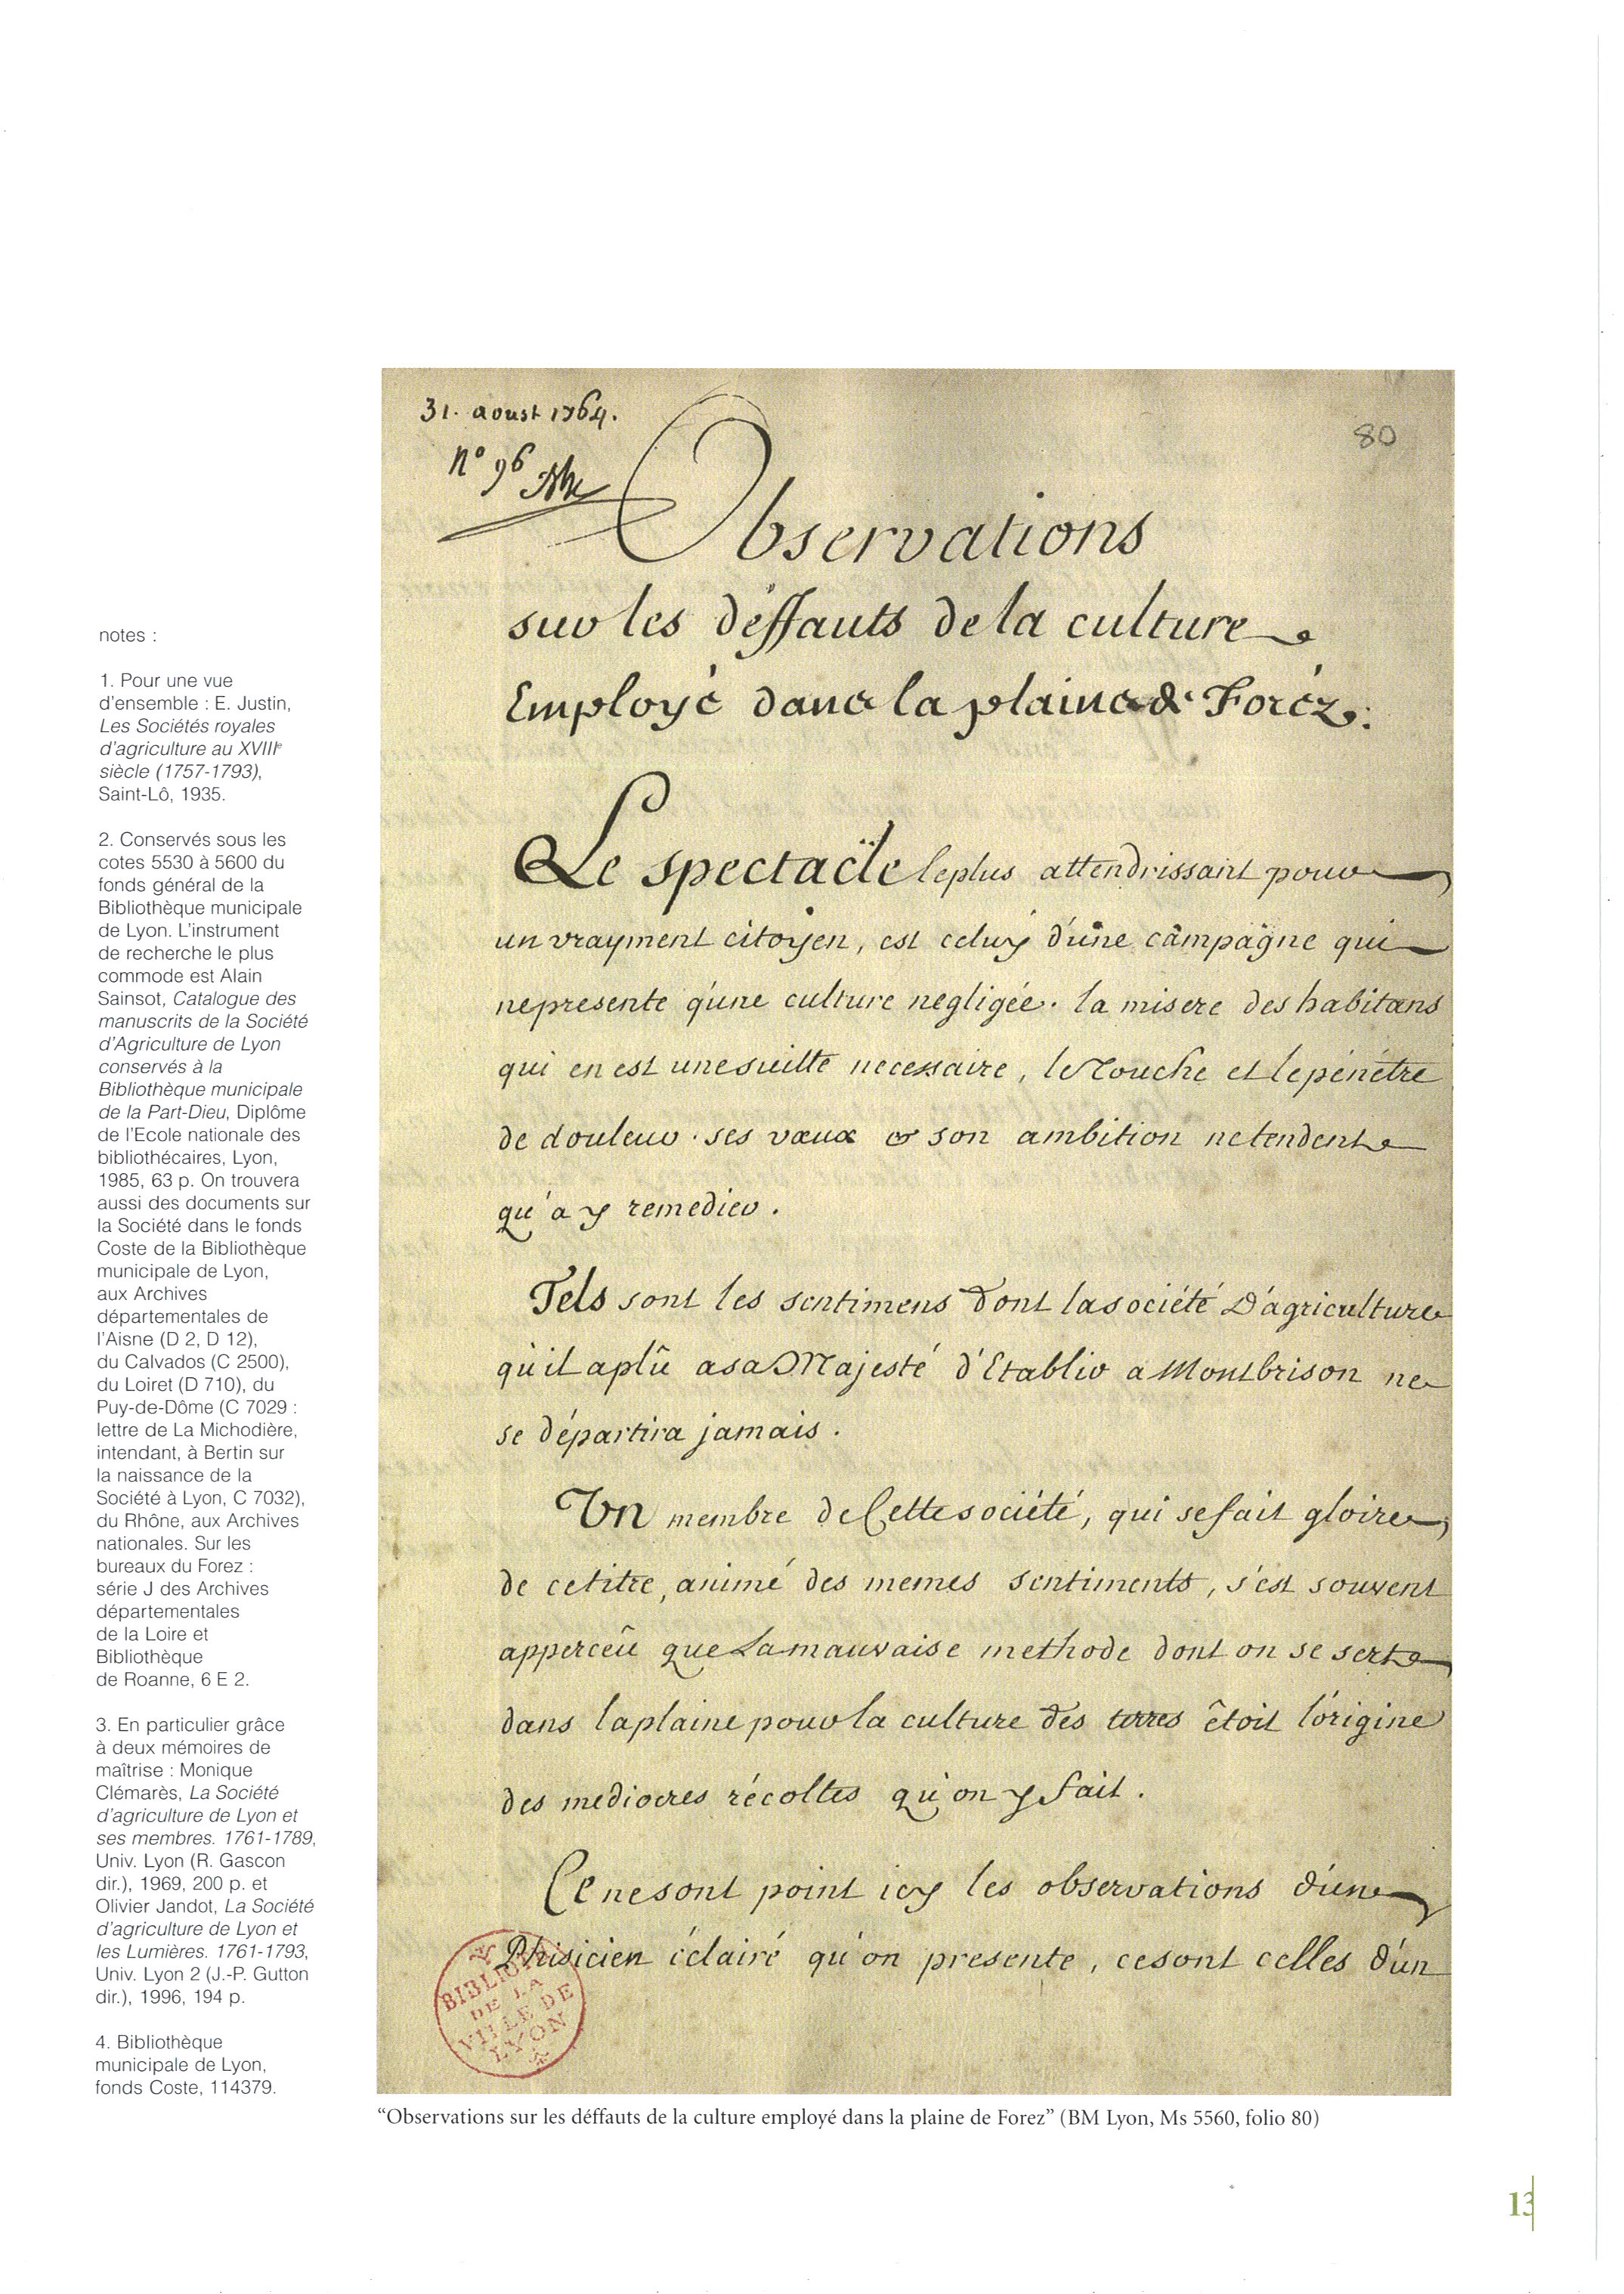 notes :
1. Pour une vue
d'ensemble : E. Justin,
Les Sociétés royales
d'agriculture au XVIIIe
siècle (1757-1793),
Saint-Lô, 1935.
2. Conservés sous les
cotes 5530 à 5600 du
fonds général de la
Bibliothèque municipale
de Lyon. L'instrument
de recherche le plus
commode est Alain
Sainsot, Catalogue des
manuscrits de la Société
d'Agriculture de Lyon
conservés à la
Bibliothèque municipale
de la Part-Dieu, Diplôme
de l'Ecole nationale des
bibliothécaires, Lyon,
1985, 63 p. On trouvera
aussi des documents sur
la Société dans le fonds
Coste de la Bibliothèque
municipale de Lyon,
aux Archives
départementales de
l'Aisne (D 2, D 12),
du Calvados (C 2500),
du Loiret (D 710), du
Puy-de-Dôme (C 7029 :
lettre de La Michodière,
intendant, à Bertin sur
la naissance de la
Société à Lyon, C 7032),
du Rhône, aux Archives
nationales. Sur les
bureaux du Forez :
série J des Archives
départementales
de la Loire et
Bibliothèque
de Roanne, 6 E 2.
3. En particulier grâce
à deux mémoires de
maîtrise : Monique
Clémarès, La Société
d'agriculture de Lyon et
ses membres. 1761-1789,
Univ. Lyon (R. Gascon
dir.), 1969, 200 p. et
Olivier Jandot, La Société
d'agriculture de Lyon et
les Lumières. 1761-1793,
Univ. Lyon 2 (J.-P. Gutton
dir.), 1996, 194 p.
4. Bibliothèque
municipale de Lyon,
fonds Coste, 114379.
31. aoust 1764.
80
n° 96
Observations
sur les déffauts de la culture
Employé dans la plaine de Foréz.
Le spectacle le plus attendrissant pour
un vrayment citoyen, est celuy d'une campagne qui
ne presente q'une culture negligée. la misere des habitans
qui en est une suitte necessaire, le Touche et le pénétre
de douleur. ses vœux & son ambition ne tendent
qu'a y remedier.
Tels sont les sentimens dont la société D'agriculture
qu'il a plû a sa Majesté d'Etablir a Montbrison ne
se départira jamais.
Un membre de Cette société, qui se fait gloire,
de ce titre, animé des memes sentiments, s'est souvent
apperceû que La mauvaise methode dont on se sert
dans la plaine pour la culture des terres êtoit l'origine
des mediocres récoltes qu'on y fait.
Ce ne sont point icy les observations d'un
Phisicien éclairé qu'on presente, ce sont celles d'un
BIBLIOT
DE LA
VILLE DE
LYON
“Observations sur les déffauts de la culture employé dans la plaine de Forez” (BM Lyon, Ms 5560, folio 80)
13